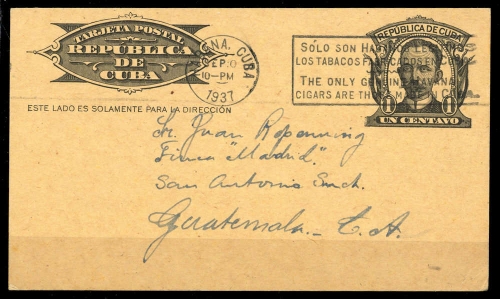 TARJETA POSTAL
REPÚBLICA
DE
CUBA
HABANA, CUBA
SEP 0
10-PM
1937
SOLO SON HABANOS LEGITIMOS
LOS TABACOS FABRICADOS EN CUBA
THE ONLY GENUINE HAVANA
CIGARS ARE THOSE MADE IN CUBA
REPÚBLICA DE CUBA
1 1
UN CENTAVO
ESTE LADO ES SOLAMENTE PARA LA DIRECCIÓN
Sr. Juan Roperning
Finca "Madrid"
San Antonio Such.
Guatemala - C.A.